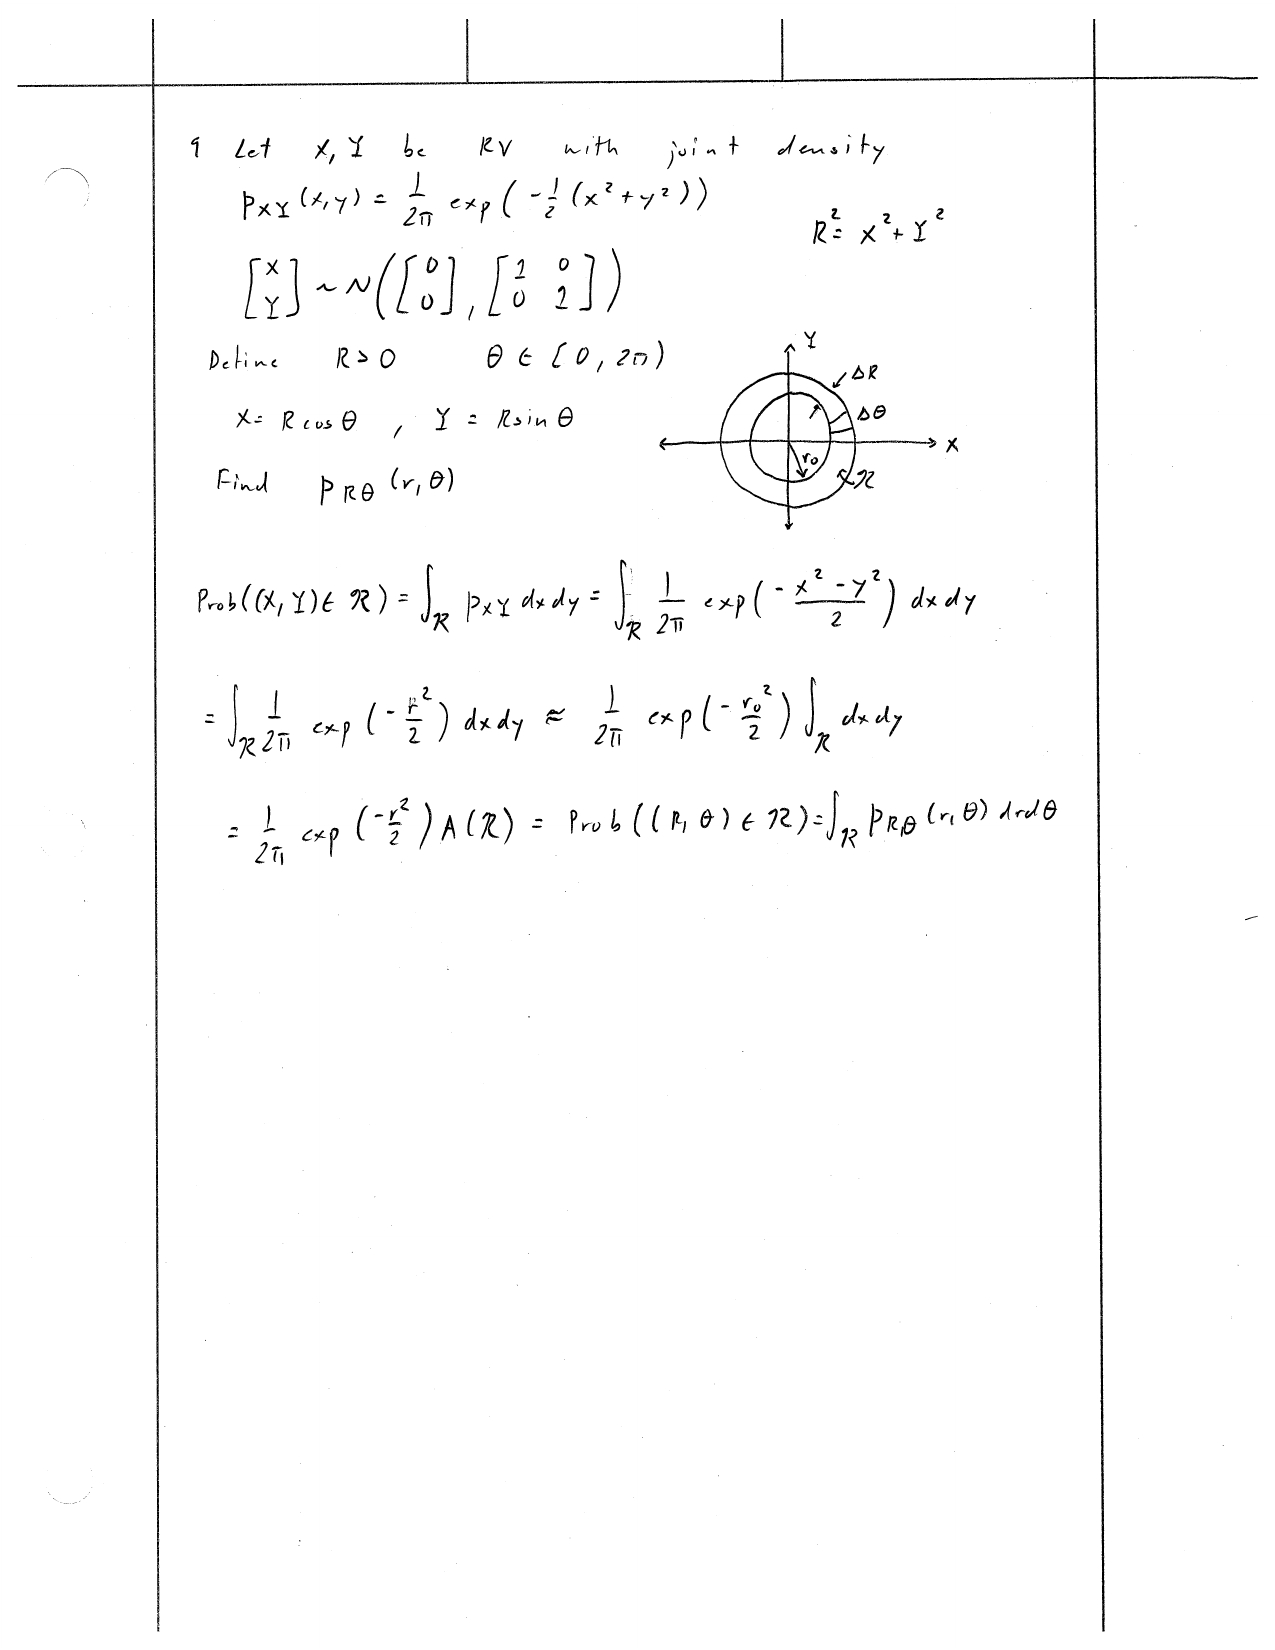 9 Let X, Y be RV with joint density
p_XY (x,y) = 1/2π exp( -1/2 (x² + y²))
R² = X² + Y²
[X Y] ~ N([0 0], [1 0 0 1])
Define R > 0 θ ∈ [0, 2π)
X = R cos θ , Y = R sin θ
Find p_Rθ (r, θ)
Y
ΔR
Δθ
X
r₀
R
Prob((X, Y) ∈ R) = ∫_R p_XY dx dy = ∫_R 1/2π exp( (-x² - y²)/2 ) dx dy
= ∫_R 1/2π exp( -r²/2 ) dx dy ≈ 1/2π exp( -r₀²/2 ) ∫_R dx dy
= 1/2π exp( -r²/2 ) A(R) = Prob((R, θ) ∈ R) = ∫_R p_Rθ (r, θ) dr dθ